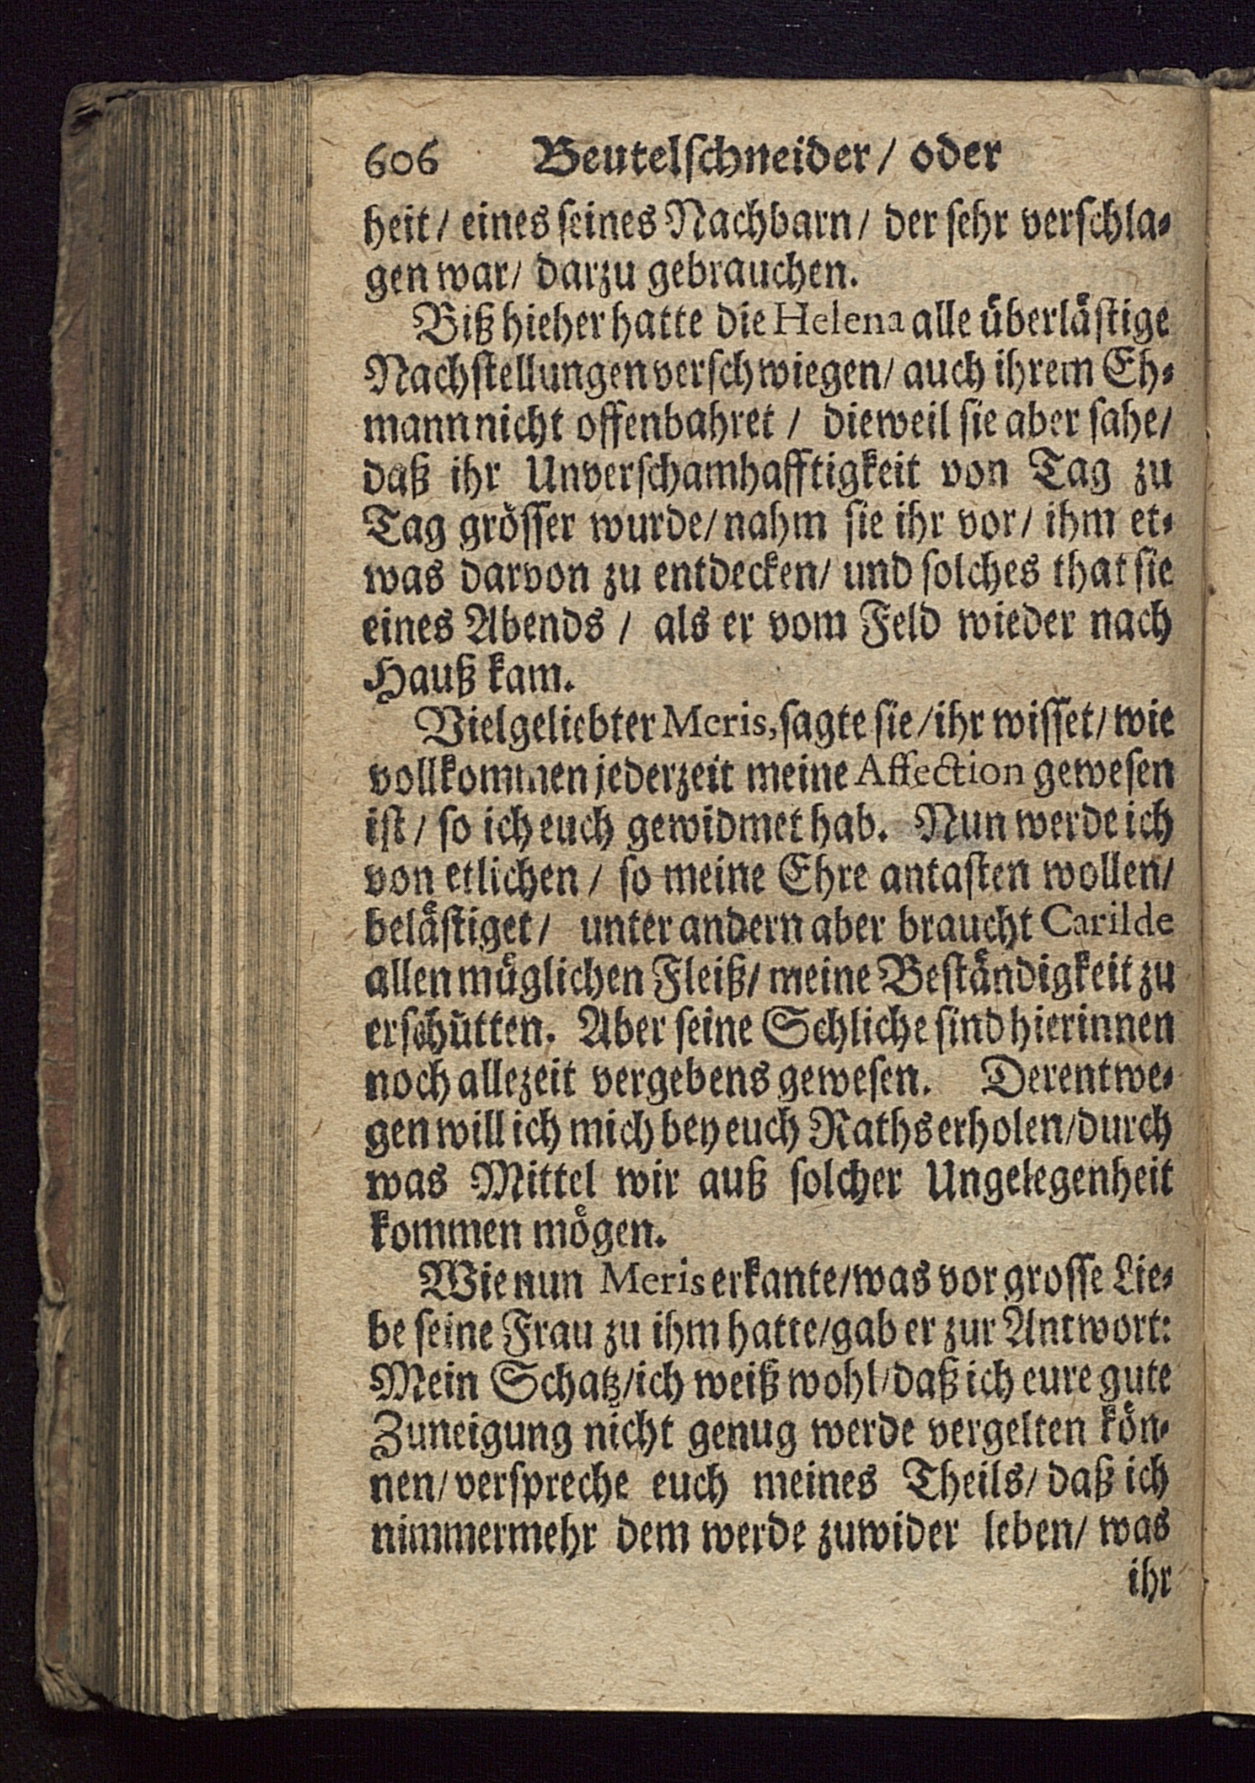 606 Beutelſchneider / oder
heit / eines ſeines Nachbarn / der ſehr verſchla⸗
gen war / darzu gebrauchen.
Biß hieher hatte die Helena alle uͤberlaͤſtige
Nachſtellungen verſchwiegen / auch ihrem Eh⸗
mann nicht offenbahret / dieweil ſie aber ſahe /
daß ihr Unverſchamhafftigkeit von Tag zu
Tag groͤſſer wurde / nahm ſie ihr vor / ihm et⸗
was darvon zu entdecken / und ſolches that ſie
eines Abends / als er vom Feld wieder nach
Hauß kam.
Vielgeliebter Meris, ſagte ſie / ihr wiſſet / wie
vollkommen jederzeit meine Affection geweſen
iſt / ſo ich euch gewidmet hab. Nun werde ich
von etlichen / ſo meine Ehre antaſten wollen /
belaͤſtiget / unter andern aber braucht Carilde
allen muͤglichen Fleiß / meine Beſtaͤndigkeit zu
erſchuͤtten. Aber ſeine Schliche ſind hierinnen
noch allezeit vergebens geweſen. Derentwe⸗
gen will ich mich bey euch Raths erholen / durch
was Mittel wir auß ſolcher Ungelegenheit
kommen moͤgen.
Wie nun Meris erkante / was vor groſſe Lie⸗
be ſeine Frau zu ihm hatte / gab er zur Antwort:
Mein Schatz / ich weiß wohl / daß ich eure gute
Zuneigung nicht genug werde vergelten koͤn⸗
nen / verſpreche euch meines Theils / daß ich
nimmermehr dem werde zuwider leben / was
ihr